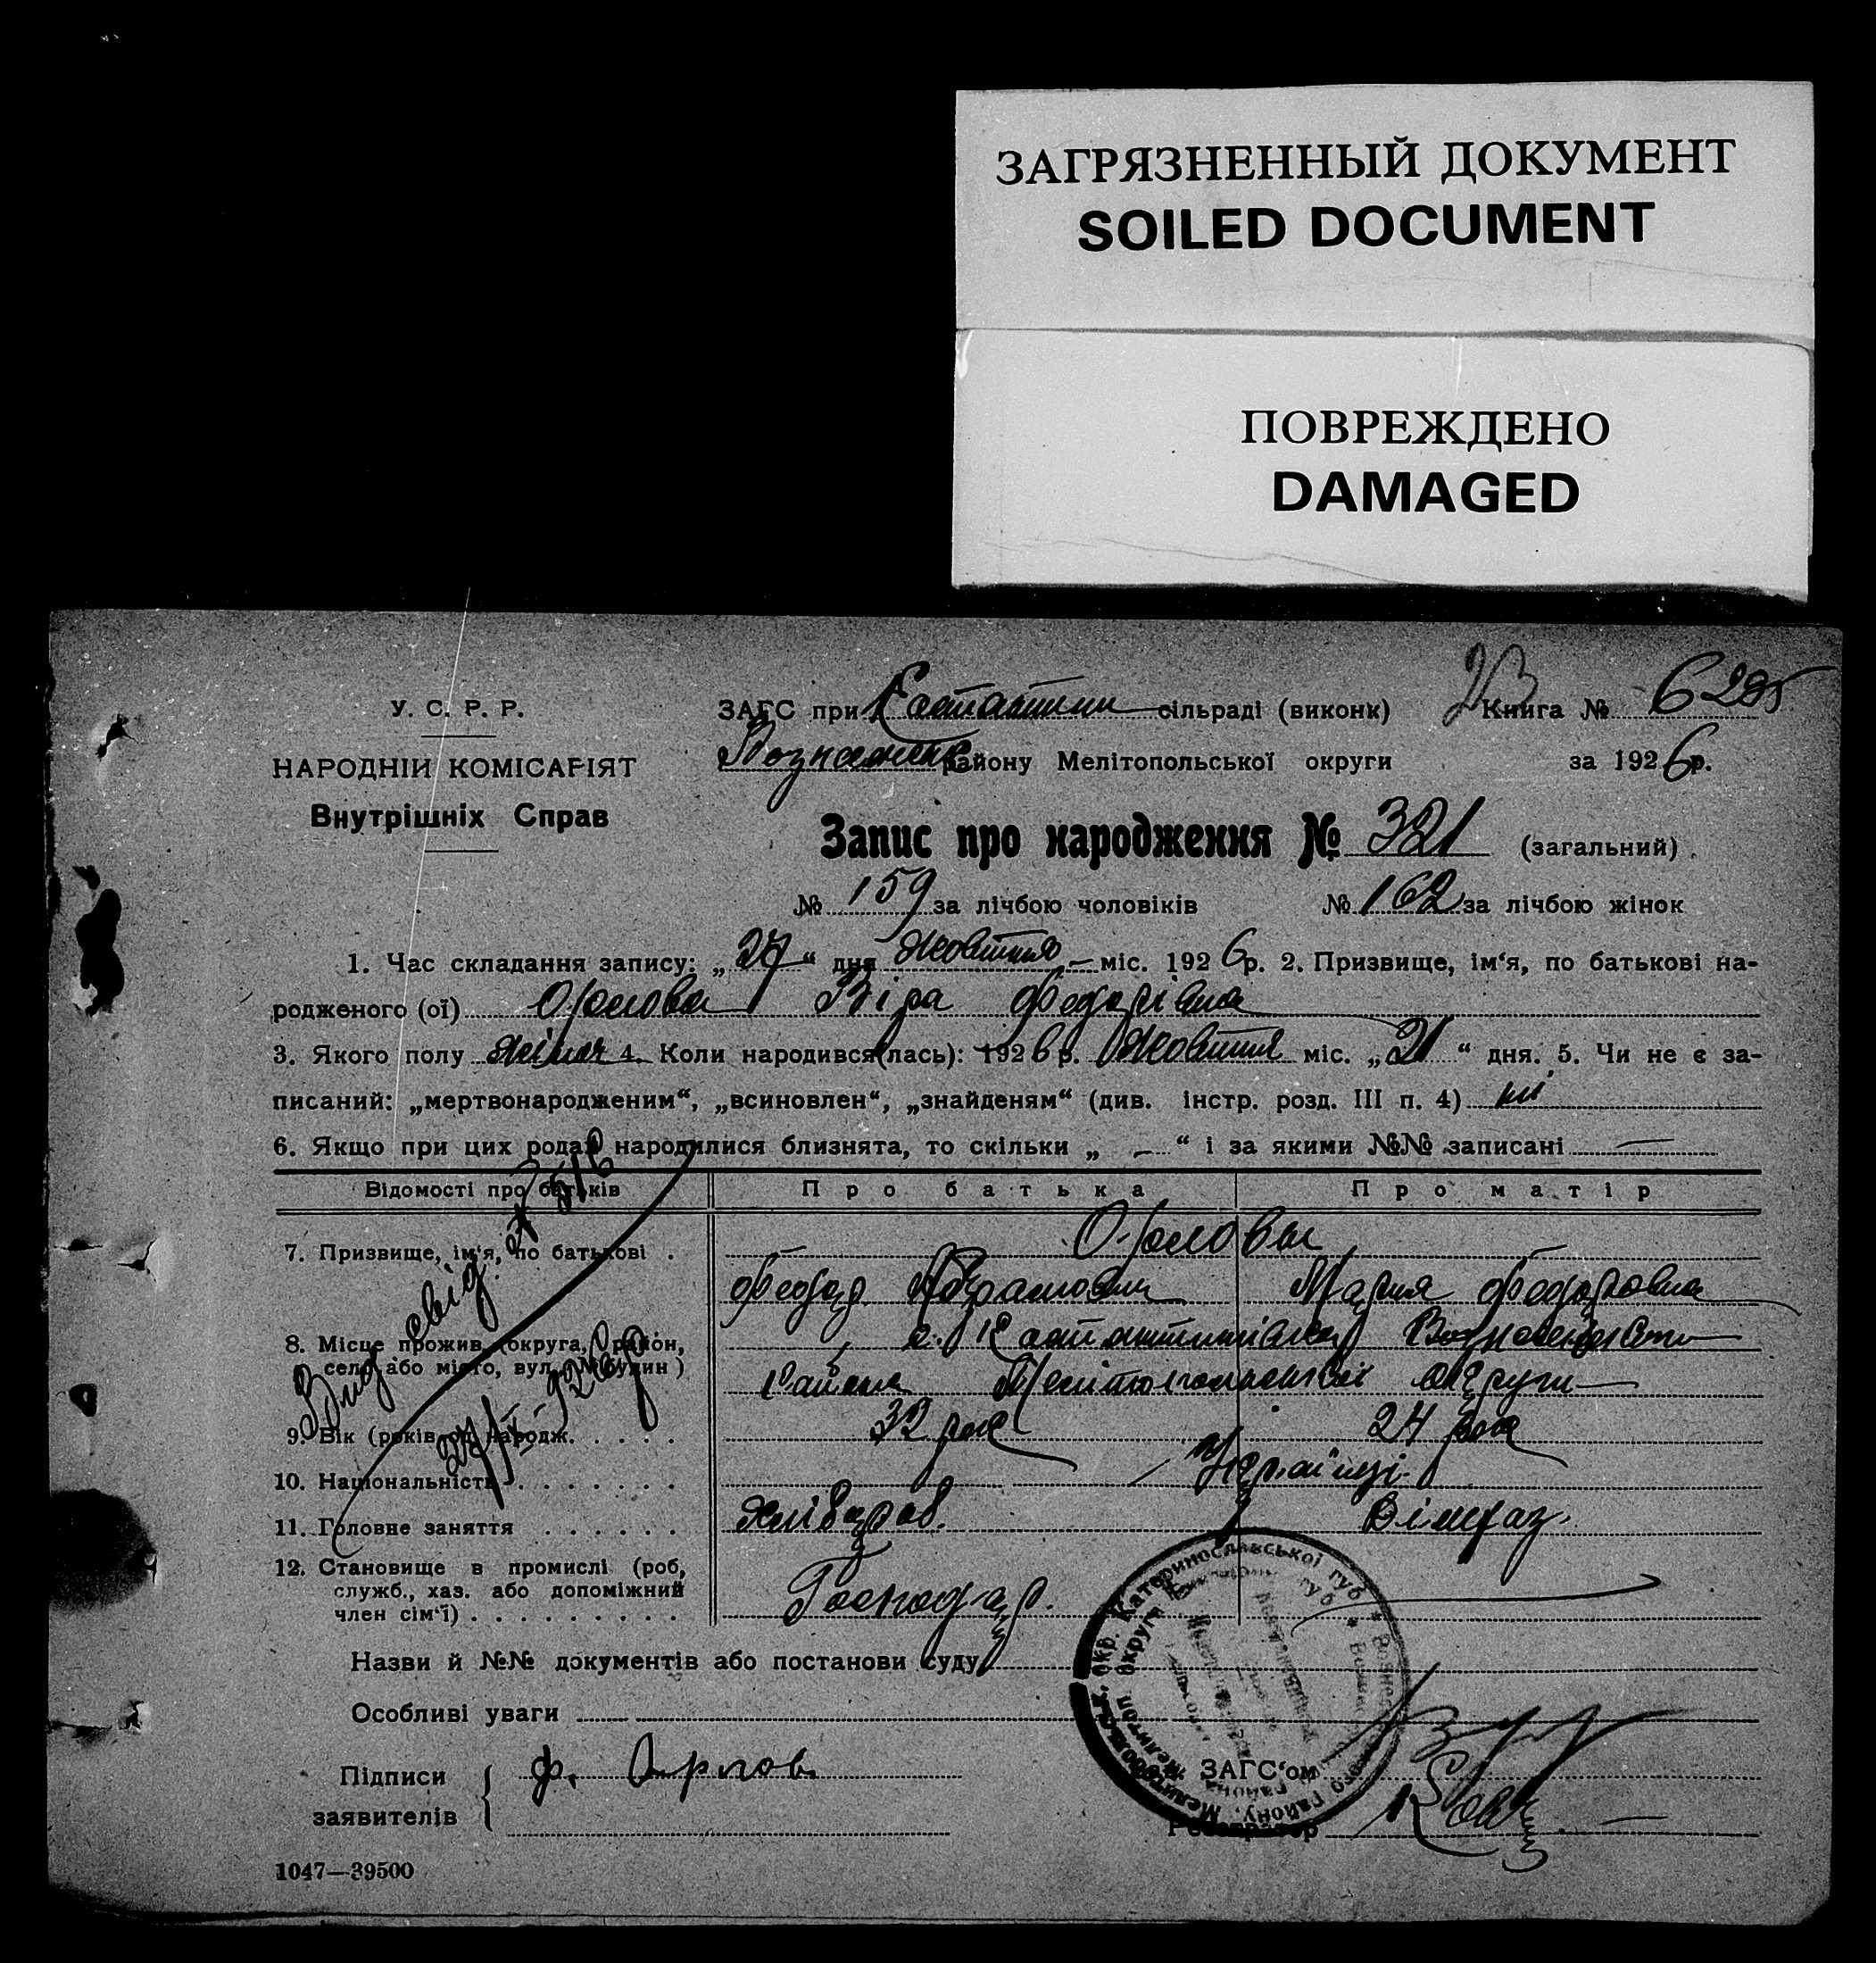 ЗАГРЯЗНЕННЫЙ ДОКУМЕНТ
SOILED DOCUMENT
ПОВРЕЖДЕНО
DAMAGED
У. С. Р. Р.
НАРОДНІЙ КОМІСАРІЯТ
Внутрішніх Справ
ЗАГС при сільраді (виконк) Книга №
району Мелітопольської округи за 1926 р.
Запис про народження № 321 (загальний)
№ 159 за лічбою чоловіків № 162 за лічбою жінок
1. Час складання запису: „27“ дня Жовтня міс. 1926 р. 2. Призвище, ім'я, по батькові на-
родженого (ої) Орлова Віра Федорівна
3. Якого полу 4. Коли народився(лась): 1926 р. Жовтня міс. „21“ дня. 5. Чи не є за-
писаний: „мертвонародженим“, „всиновлен“, „знайденям“ (див. інстр. розд. III п. 4) ні
6. Якщо при цих родах народилися близнята, то скільки „ — “ і за якими №№ записані —
Відомості про батьків Про батька Про матір
7. Призвище, ім'я, по батькові . Орловы
Федор Абрамович Мария Федоровна
8. Місце прожив. (округа, район,
село або місто, вул., № будин)
района Мелітопольської округи
9. Вік (років од народж. 32 рок 24 рок
10. Національність Українці
11. Головне заняття Хлібороб.
12. Становище в промислі (роб, служб., хаз. або допоміжний член сім'ї) Господар.
Назви й №№ документів або постанови суду
Особливі уваги
Підписи заявителів Ф. Орлов
ЗАГС'ом
Реєстратор
1047—39500